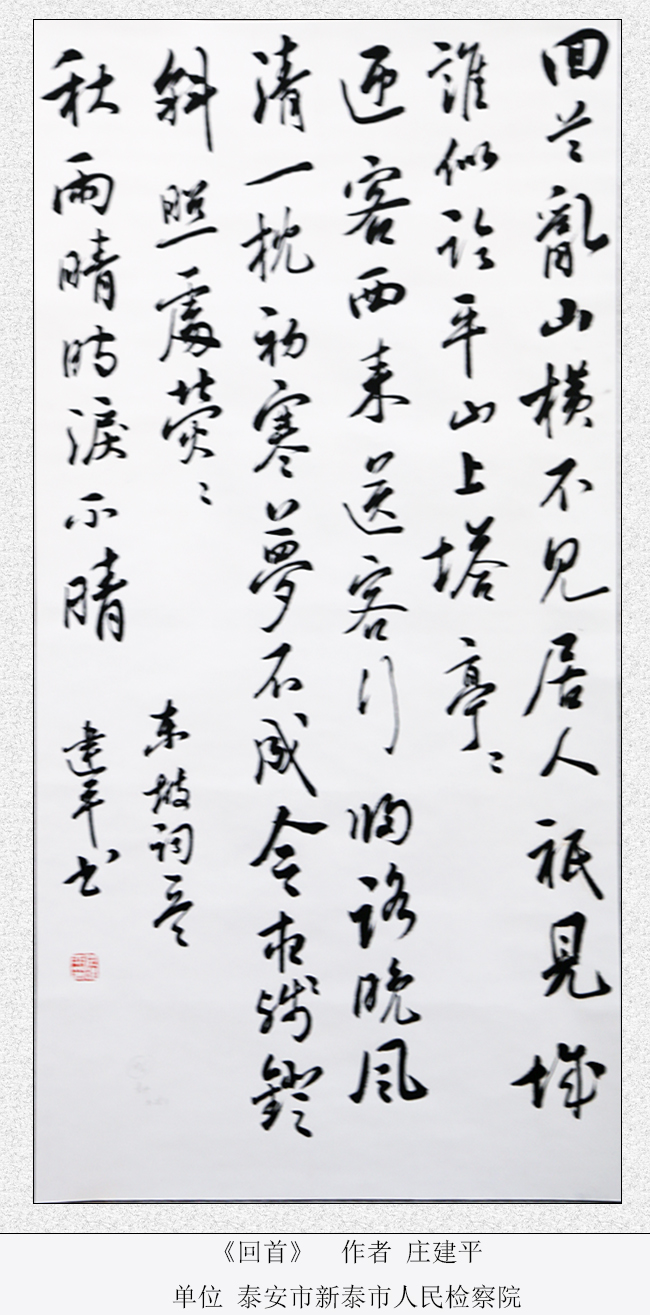 回首亂山橫不見居人祇見城
誰似臨平山上塔亭〻
迎客西来送客行歸路晚風
清一枕初寒夢不成今夜殘鐙
斜照處熒〻
秋雨晴時淚不晴
东坡词一首
建平书
《回首》 作者 庄建平
单位 泰安市新泰市人民检察院